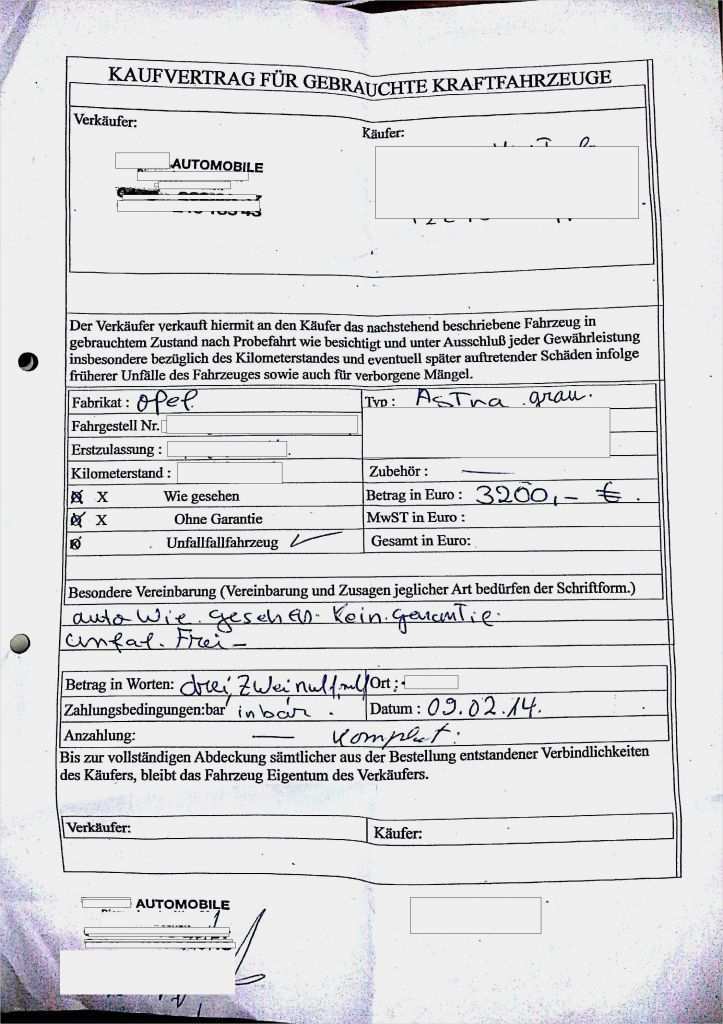 KAUFVERTRAG FÜR GEBRAUCHTE KRAFTFAHRZEUGE
Verkäufer:
Käufer:
AUTOMOBILE
Der Verkäufer verkauft hiermit an den Käufer das nachstehend beschriebene Fahrzeug in
gebrauchtem Zustand nach Probefahrt wie besichtigt und unter Ausschluß jeder Gewährleistung
insbesondere bezüglich des Kilometerstandes und eventuell später auftretender Schäden infolge
früherer Unfälle des Fahrzeuges sowie auch für verborgene Mängel.
Fabrikat : Opel Typ : Astra grau.
Fahrgestell Nr.
Erstzulassung :
Kilometerstand : Zubehör : —
X Wie gesehen Betrag in Euro : 3200,- €.
X Ohne Garantie MwST in Euro :
Unfallfallfahrzeug ✓ Gesamt in Euro:
Besondere Vereinbarung (Vereinbarung und Zusagen jeglicher Art bedürfen der Schriftform.)
auto Wie. gesehen. Kein. garantie.
unfal. Frei –
Betrag in Worten: drei, Zwei null, null Ort :
Zahlungsbedingungen:bar in bar. Datum : 09.02.14.
Anzahlung: — Komplet:
Bis zur vollständigen Abdeckung sämtlicher aus der Bestellung entstandener Verbindlichkeiten
des Käufers, bleibt das Fahrzeug Eigentum des Verkäufers.
Verkäufer: Käufer:
AUTOMOBILE